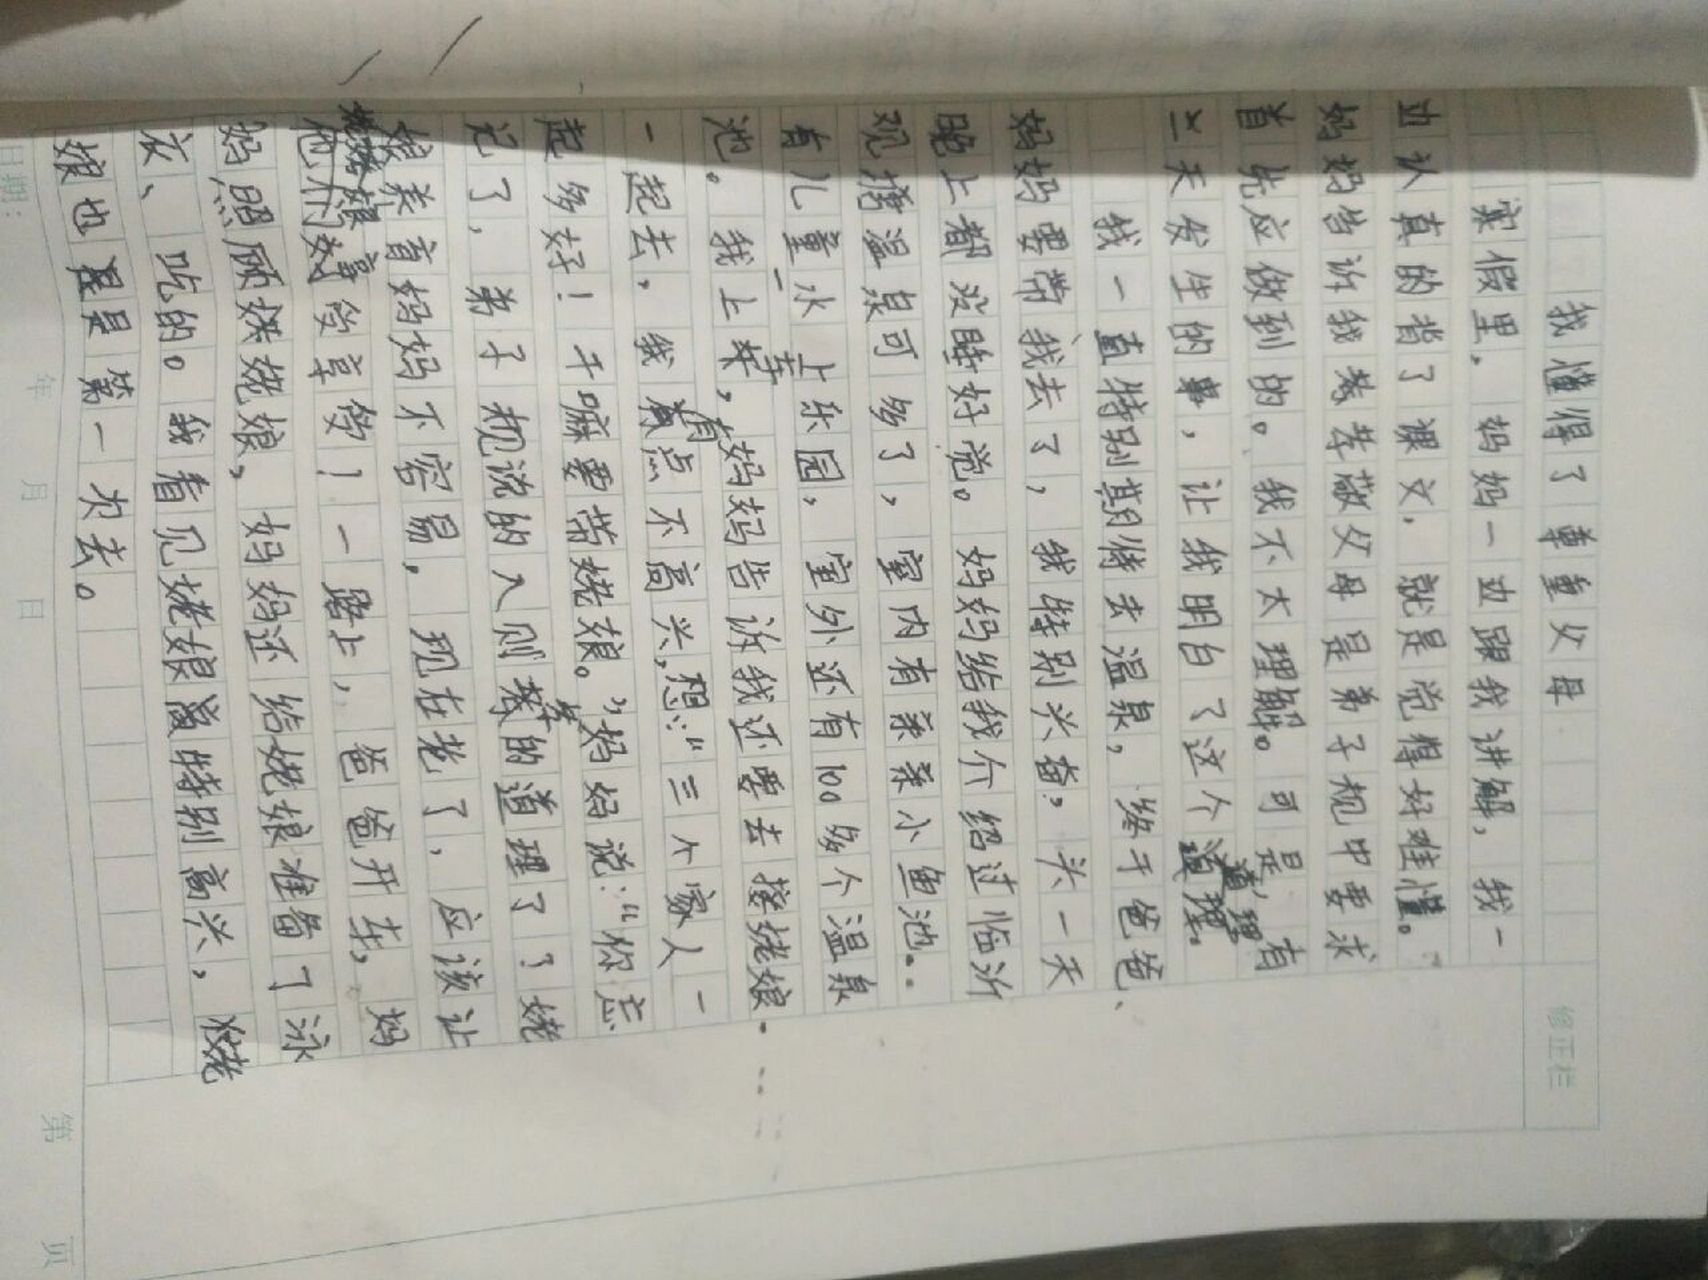 我懂得了尊重父母
修正栏
寒假里。妈妈一边跟我讲解，我一
边认真的背了课文，就是觉得好难懂。
妈妈告诉我孝敬父母是弟子规中要求
首先应做到的。我不太理解。可是有
一天发生的事，让我明白了这个道理。
我一直特别期待去温泉，终于爸爸、
妈妈要带我去了，我特别兴奋，头一天
晚上都没睡好觉。妈妈给我介绍过临沂
观塘温泉可多了，室内有亲亲小鱼池。
有儿童水上乐园，室外还有100多个温泉
池。我一上车，妈妈告诉我还要去接姥娘
一起去，我有点不高兴，想：“三个家人一
起多好！干嘛要带姥娘。”妈妈说：“你忘
记了，弟子规说的入则孝的道理了？姥
娘养育妈妈不容易，现在老了，应该让
姥娘享受享受！一路上，爸爸开车，妈
妈照顾姥娘，妈妈还给姥娘准备了泳
衣、吃的。我看见姥娘特别高兴，姥
娘也是第一次去。
日期：
年
月
日
第
页